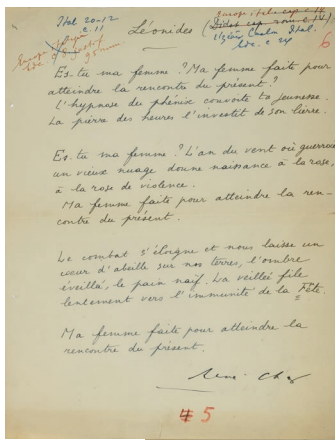 Ital 20-12
c. 11
Léonides
6
Es-tu ma femme ? Ma femme faite pour
atteindre la rencontre du présent ?
L'hypnose du phénix convoite ta jeunesse.
La pierre des heures l'investit de son lierre.
Es-tu ma femme ? L'an du vent où guerroie
un vieux nuage donne naissance à la rose,
à la rose de violence.
Ma femme faite pour atteindre la ren-
contre du présent.
Le combat s'éloigne et nous laisse un
cœur d'abeille sur nos terres, l'ombre
éveillée, le pain naïf. La veillée file
lentement vers l'immunité de la Fête.
Ma femme faite pour atteindre la
rencontre du présent.
René Char
# 5